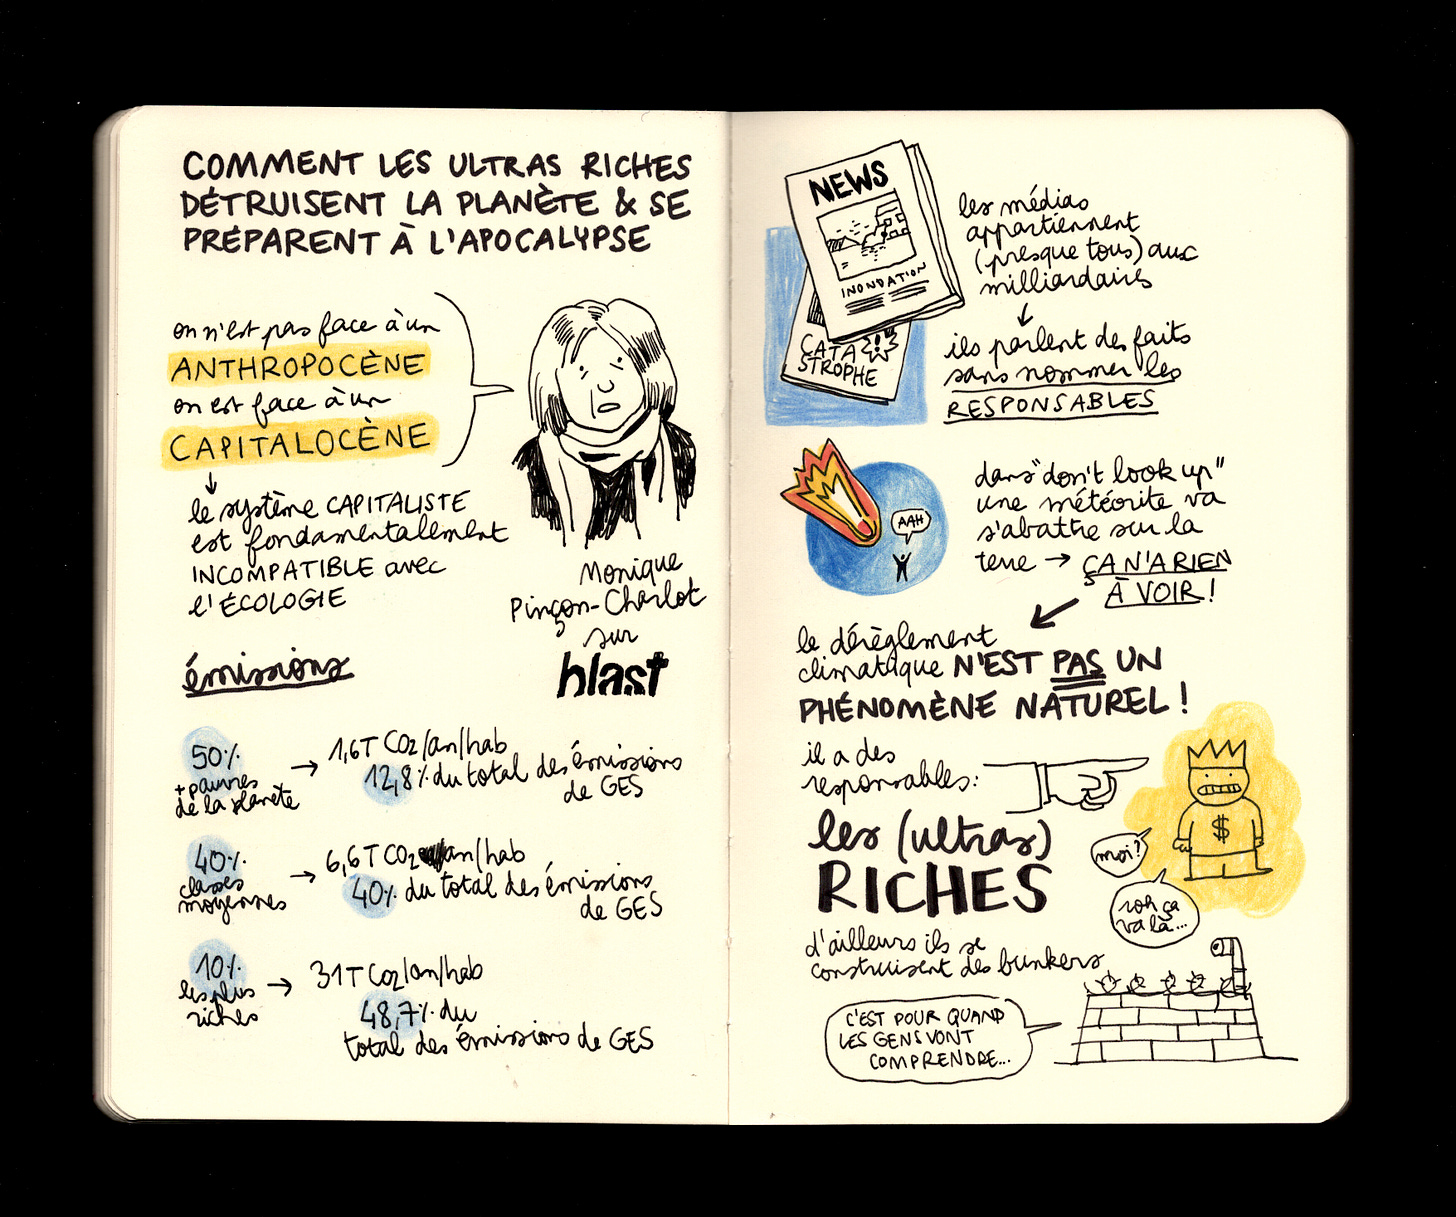 COMMENT LES ULTRAS RICHES
DÉTRUISENT LA PLANÈTE & SE
PRÉPARENT À L'APOCALYPSE
on n'est pas face à un
ANTHROPOCÈNE
on est face à un
CAPITALOCÈNE
↓
le système CAPITALISTE
est fondamentalement
INCOMPATIBLE avec
l'ÉCOLOGIE
Monique
Pinçon-Charlot
sur
blast
émissions
50%
+ pauvres
de la planète
→ 1,6T CO2/an/hab
12,8% du total des émissions
de GES
40%
classes
moyennes
→ 6,6T CO2/an/hab
40% du total des émissions
de GES
10%
les plus
riches
→ 31T CO2/an/hab
48,7% du
total des émissions de GES
NEWS
INONDATION
CATA
STROPHE
les médias
appartiennent
(presque tous) aux
milliardaires
↓
ils parlent des faits
sans nommer les
RESPONSABLES
AAH
dans "don't look up"
une météorite va
s'abattre sur la
terre → ÇA N'A RIEN
À VOIR !
le dérèglement
climatique N'EST PAS UN
PHÉNOMÈNE NATUREL !
il a des
responsables :
les (ultras)
RICHES
$
moi ?
roh ça
va là...
d'ailleurs ils se
construisent des bunkers
C'EST POUR QUAND
LES GENS VONT
COMPRENDRE...